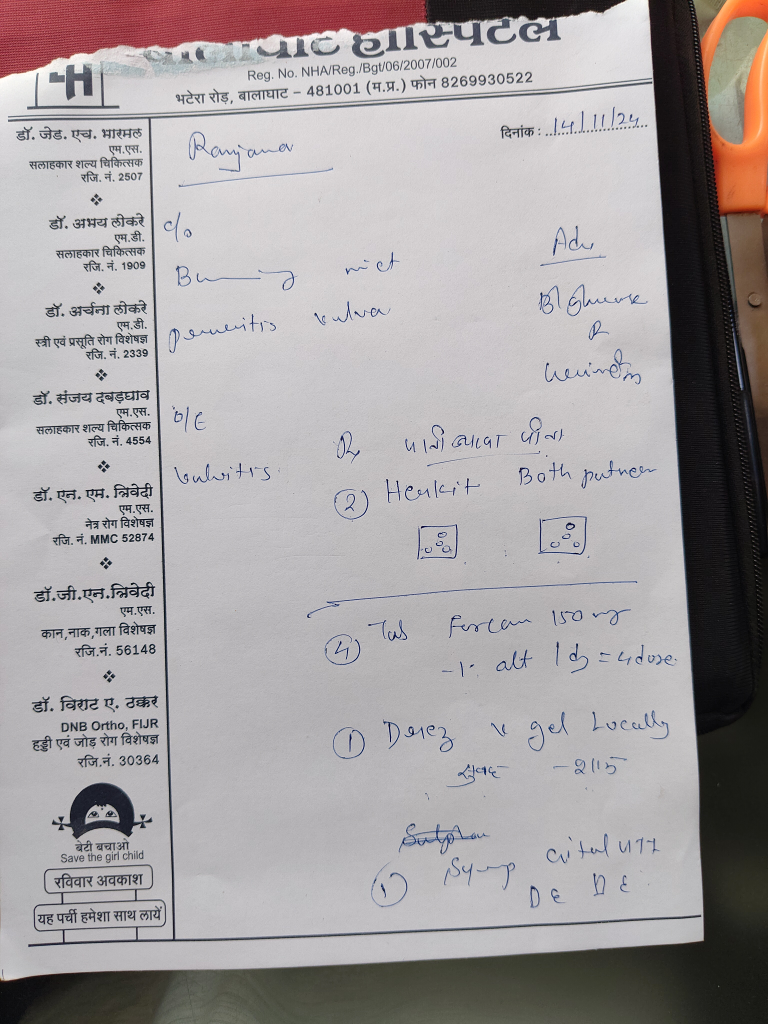 बालाघाट हॉस्पिटल
Reg. No. NHA/Reg./Bgt/06/2007/002
भटेरा रोड़, बालाघाट – 481001 (म.प्र.) फोन 8269930522
दिनांक : 14/11/24
Ranjana
डॉ. जेड. एच. भारमल
एम.एस.
सलाहकार शल्य चिकित्सक
रजि. नं. 2507
डॉ. अभय लीकरे
एम.डी.
सलाहकार चिकित्सक
रजि. नं. 1909
डॉ. अर्चना लीकरे
एम.डी.
स्त्री एवं प्रसूति रोग विशेषज्ञ
रजि. नं. 2339
डॉ. संजय दबड़घाव
एम.एस.
सलाहकार शल्य चिकित्सक
रजि. नं. 4554
डॉ. एन. एम. त्रिवेदी
एम.एस.
नेत्र रोग विशेषज्ञ
रजि. नं. MMC 52874
डॉ.जी.एन.त्रिवेदी
एम.एस.
कान,नाक,गला विशेषज्ञ
रजि.नं. 56148
डॉ. विराट ए. ठकर
DNB Ortho, FIJR
हड्डी एवं जोड़ रोग विशेषज्ञ
रजि.नं. 30364
बेटी बचाओ
Save the girl child
रविवार अवकाश
यह पर्ची हमेशा साथ लायें
c/o
Burning mict
vulva
Adv
R
O/E
Vulvitis
Rx पानी ज्यादा पीना
(2) Both
(4) Tab Forcan 150 mg
alt = 4 dose
(1) gel Locally
सुबह
(1) Syrup